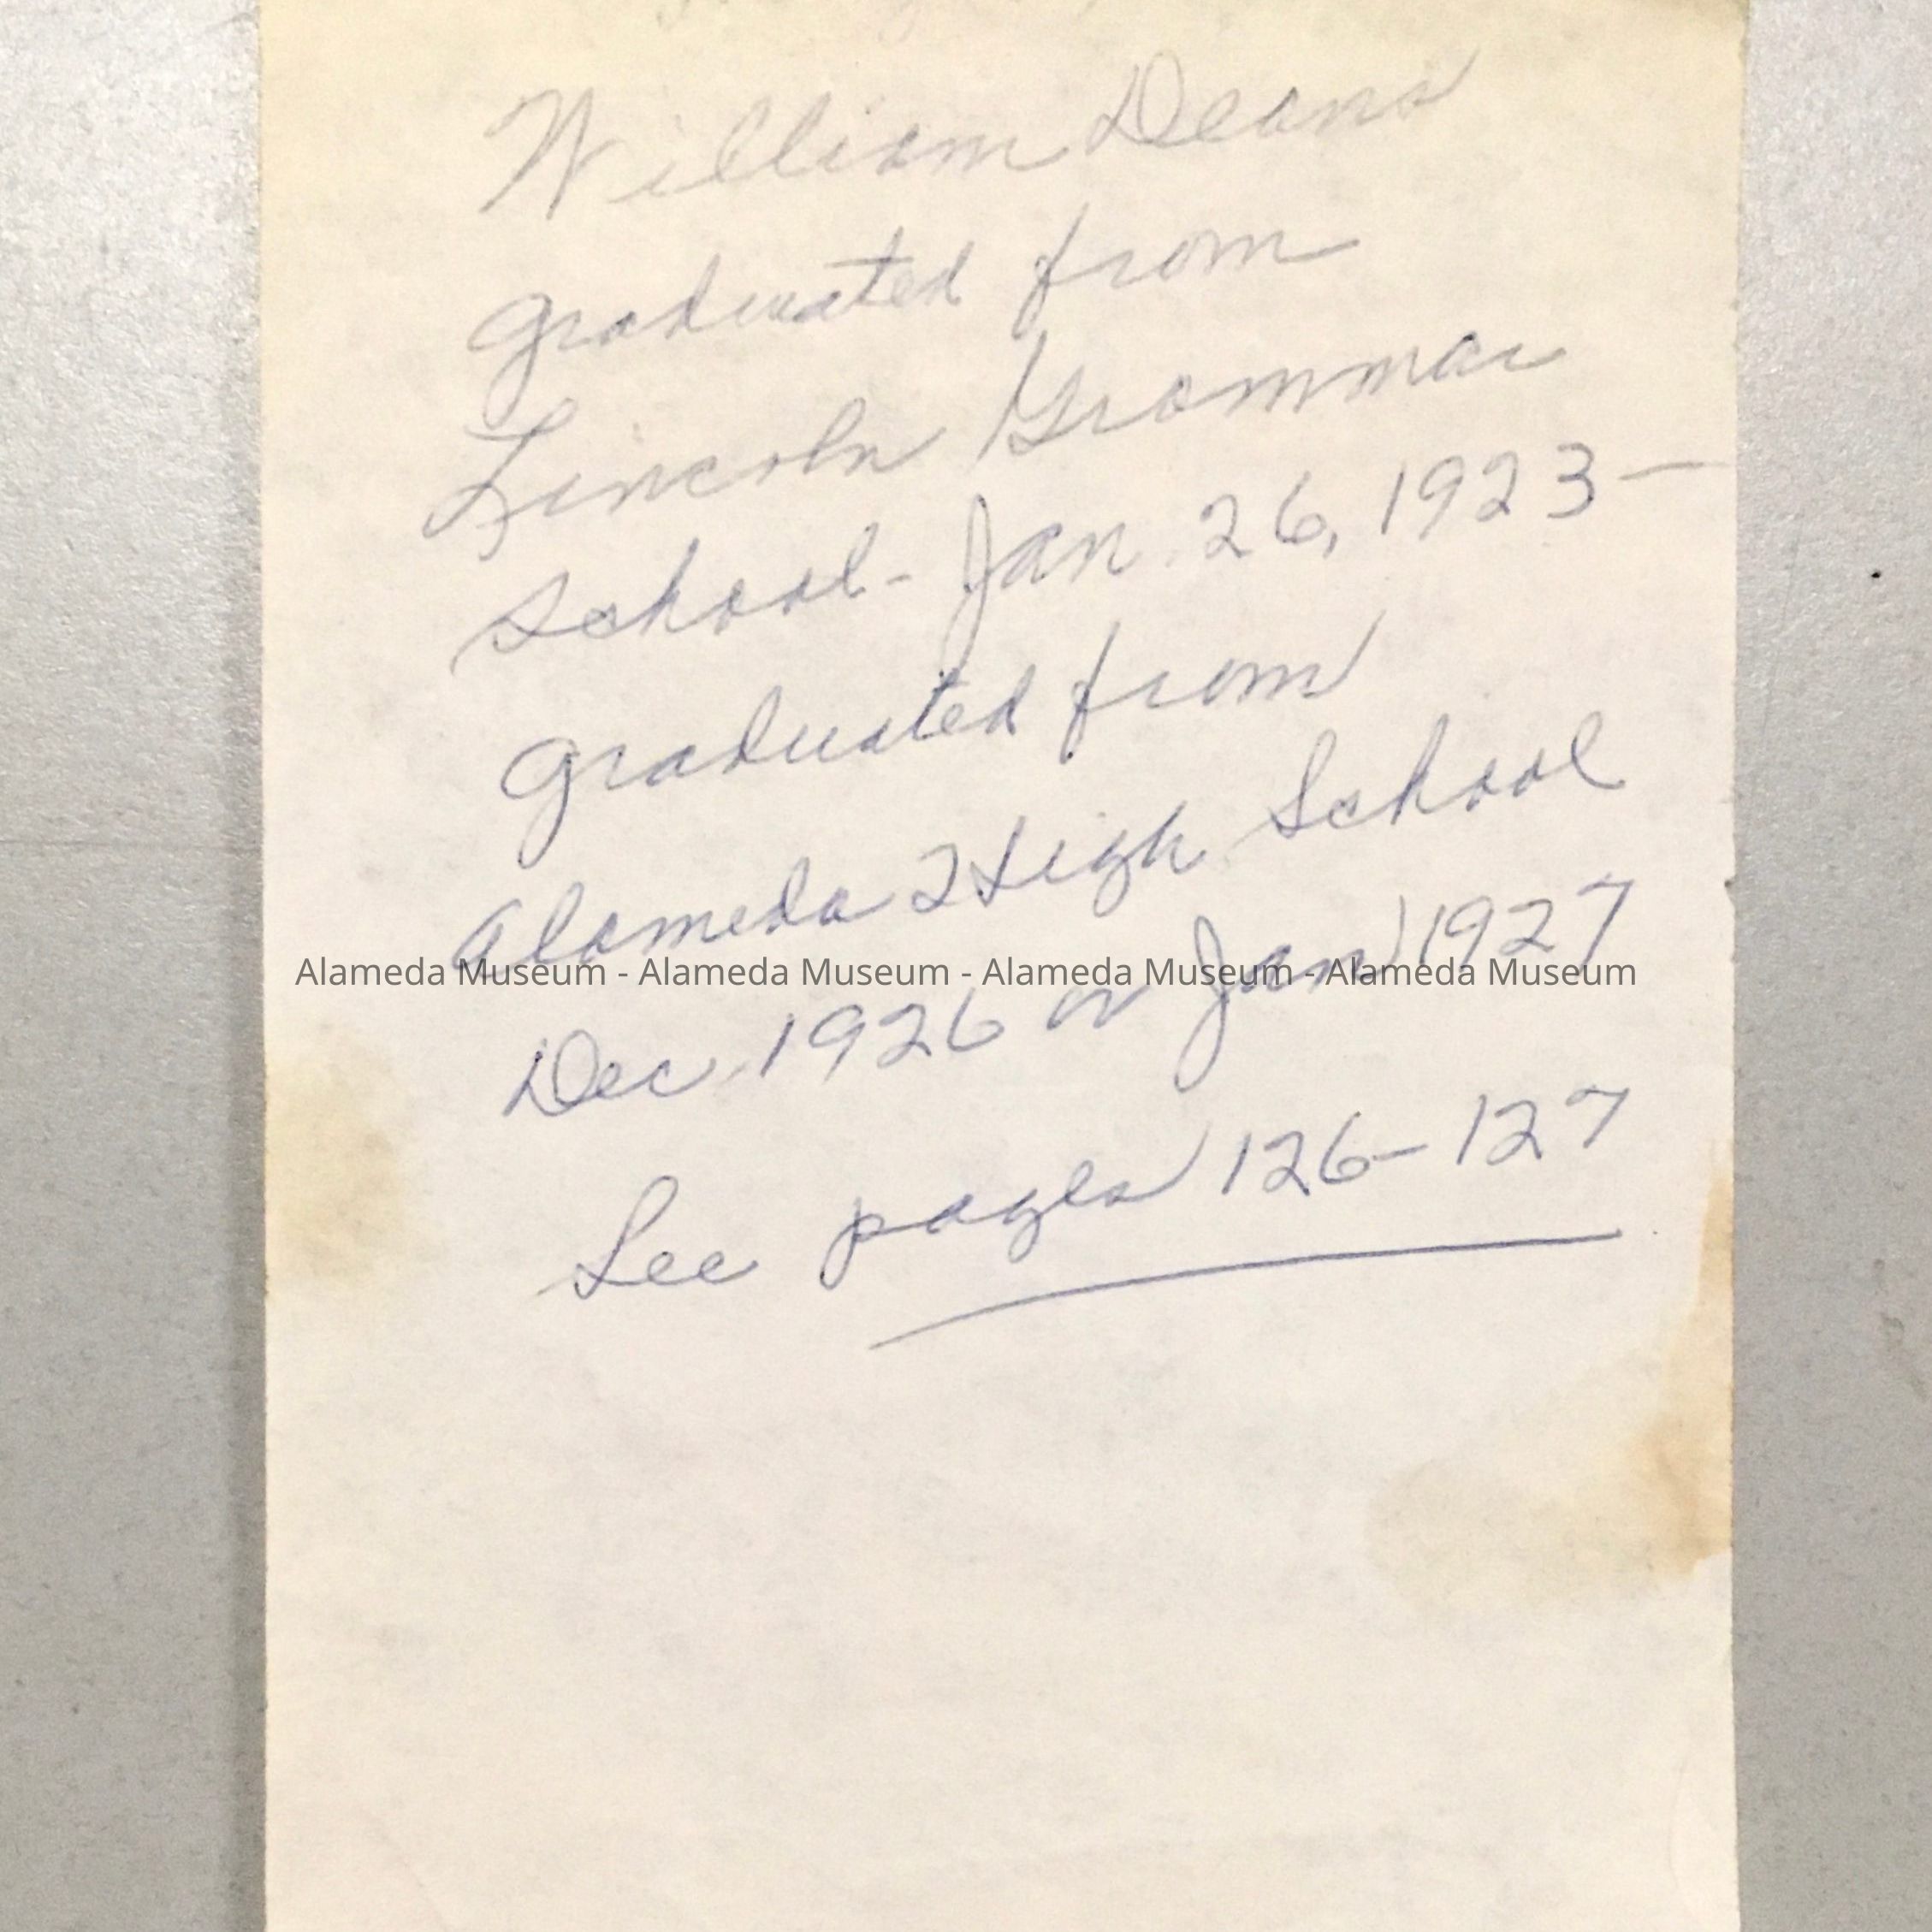 William Deans
graduated from
Lincoln Grammar
School - Jan. 26, 1923 —
graduated from
Alameda High School
Alameda Museum - Alameda Museum - Alameda Museum - Alameda Museum
Dec 1926 or Jan 1927
See pages 126-127